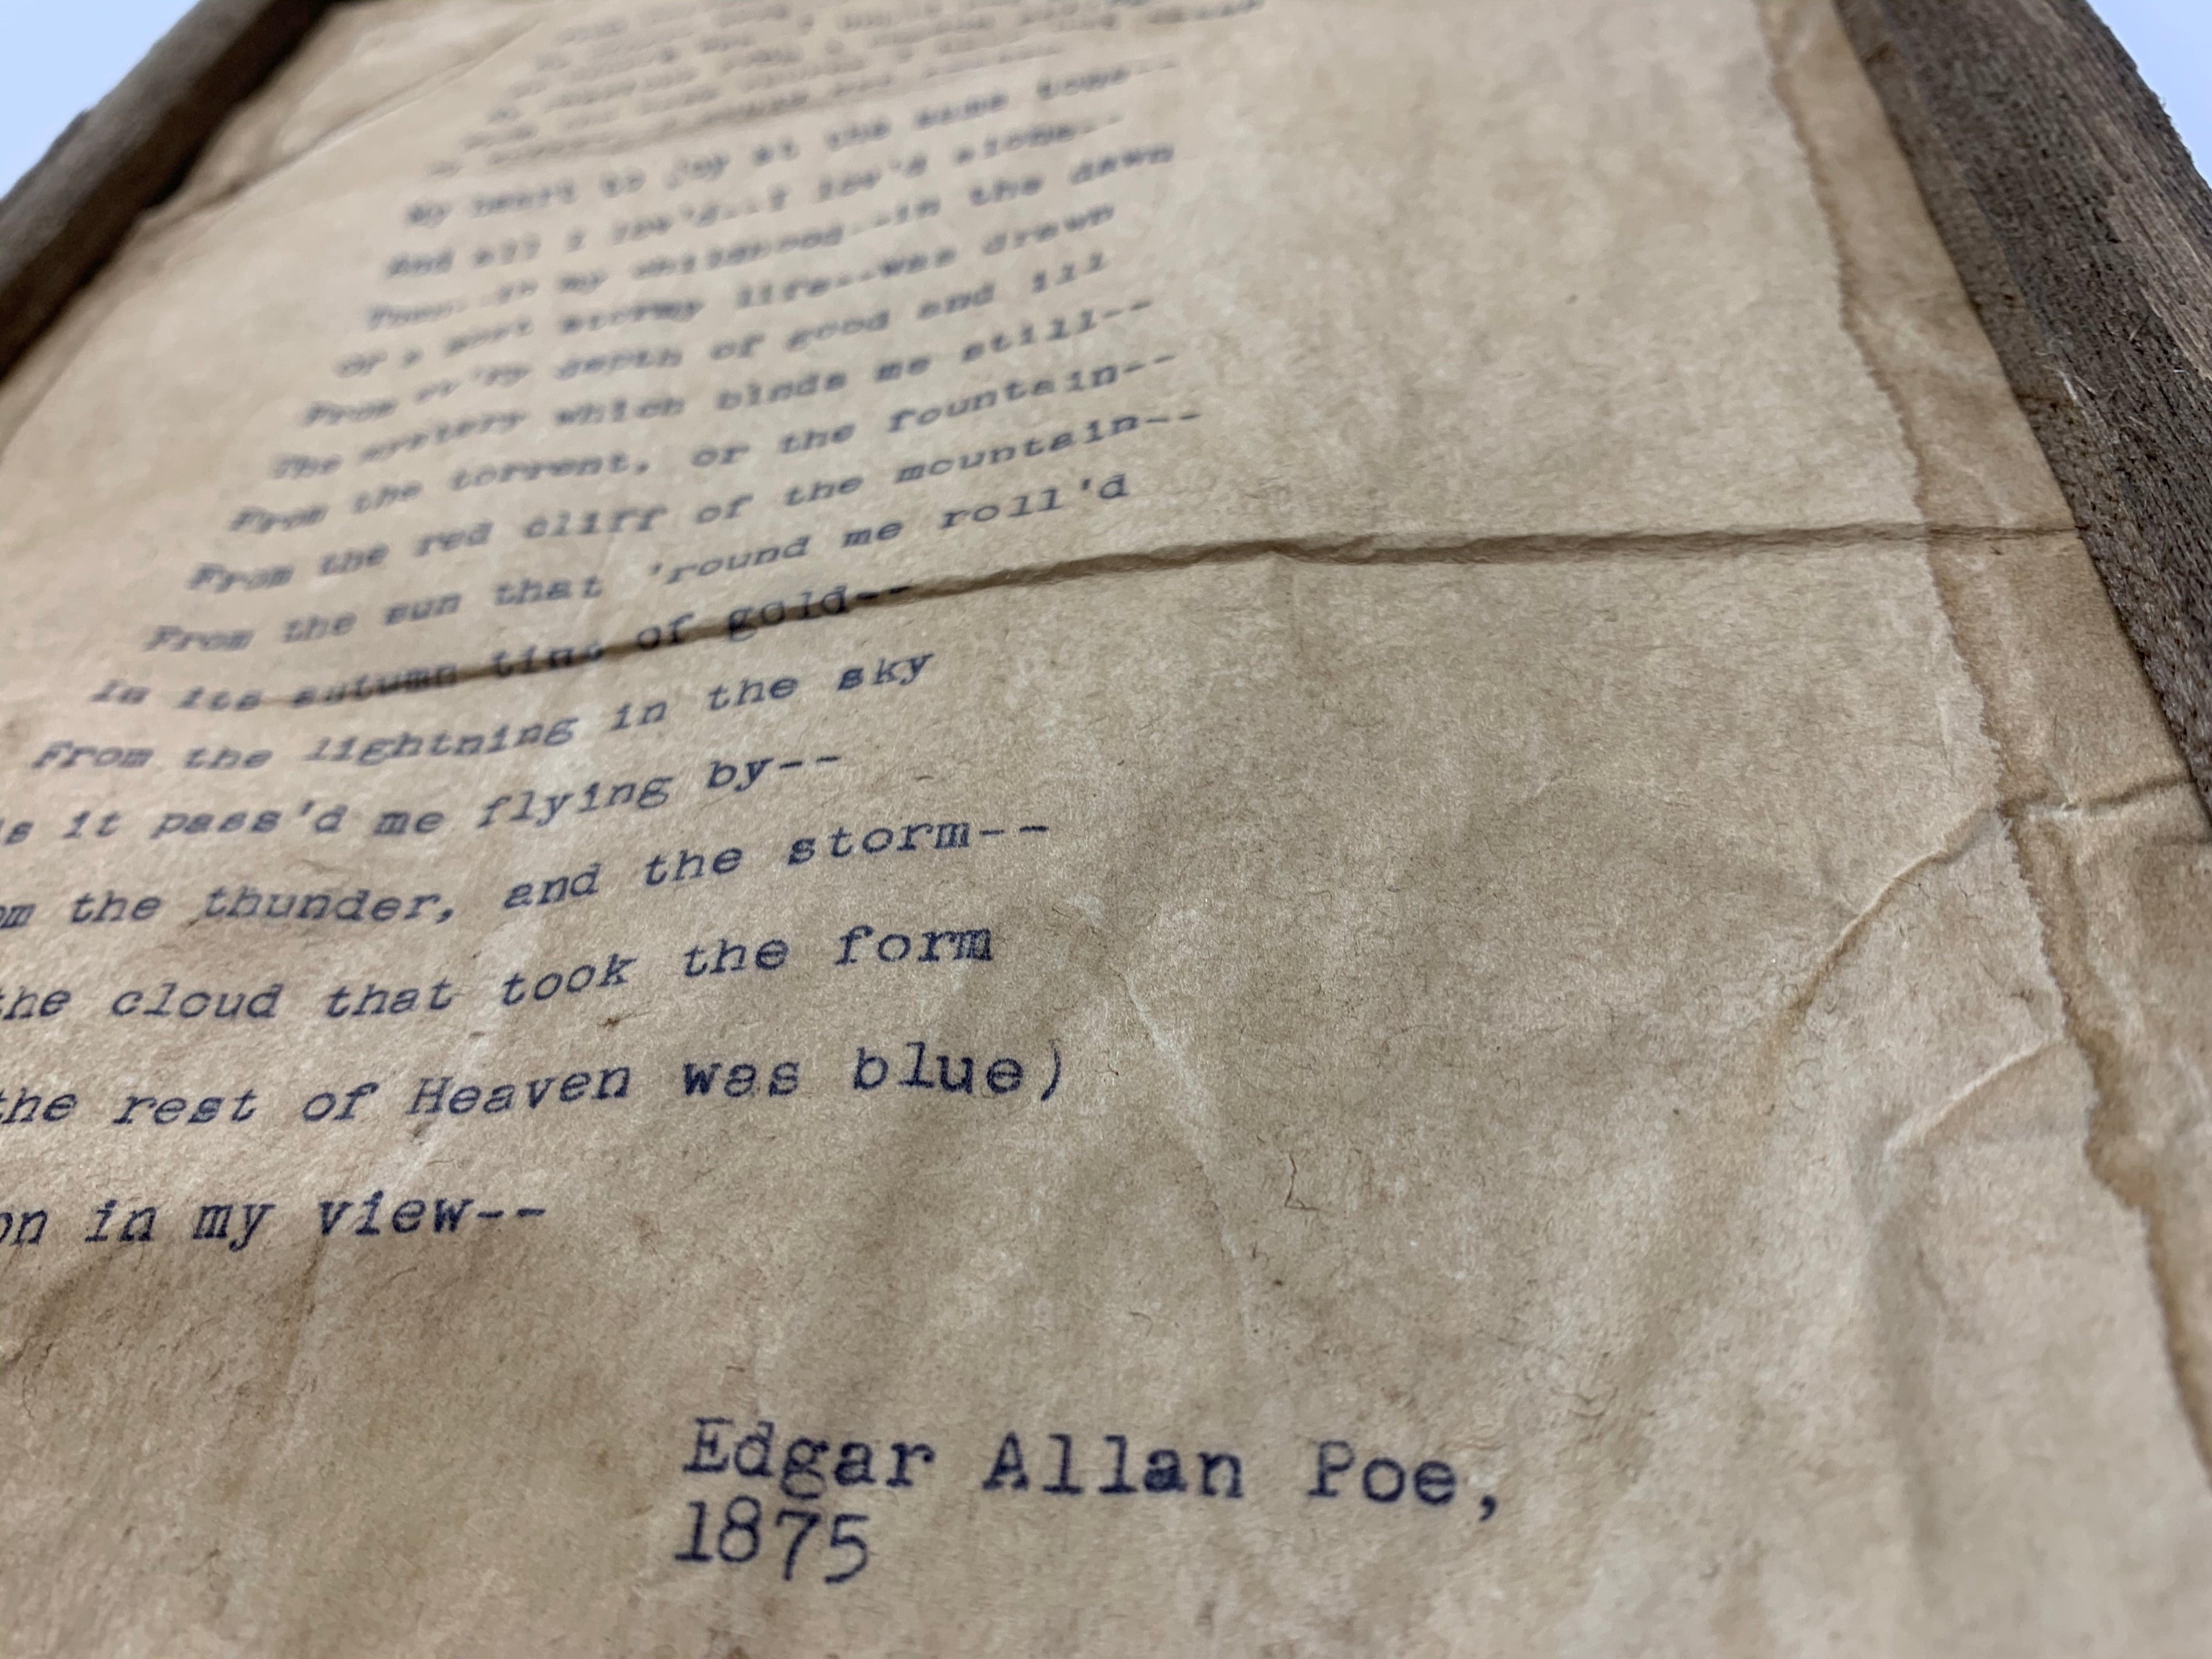 My heart to joy at the same tone--
And all I lov'd--I lov'd alone--
Then--in my childhood--in the dawn
Of a most stormy life--was drawn
From ev'ry depth of good and ill
The mystery which binds me still--
From the torrent, or the fountain--
From the red cliff of the mountain--
From the sun that 'round me roll'd
In its autumn tint of gold--
From the lightning in the sky
s it pass'd me flying by--
om the thunder, and the storm--
the cloud that took the form
the rest of Heaven was blue)
on in my view--
Edgar Allan Poe,
1875